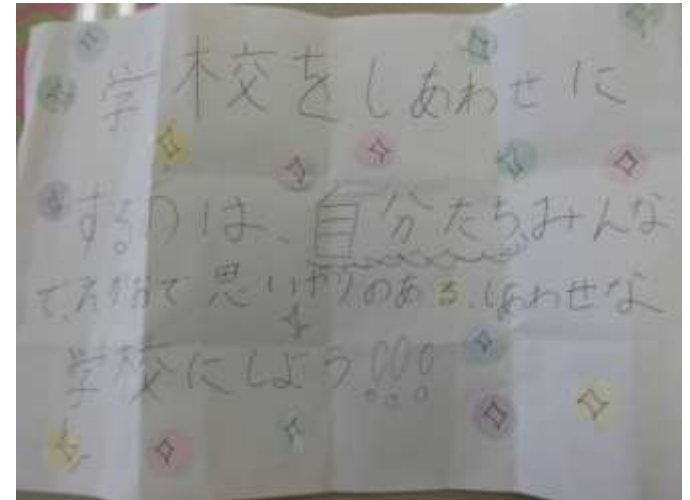 学校をしあわせに
するのは、自分たち、みんな
で、えがおで思いやりのある、しあわせな
学校にしよう!!!